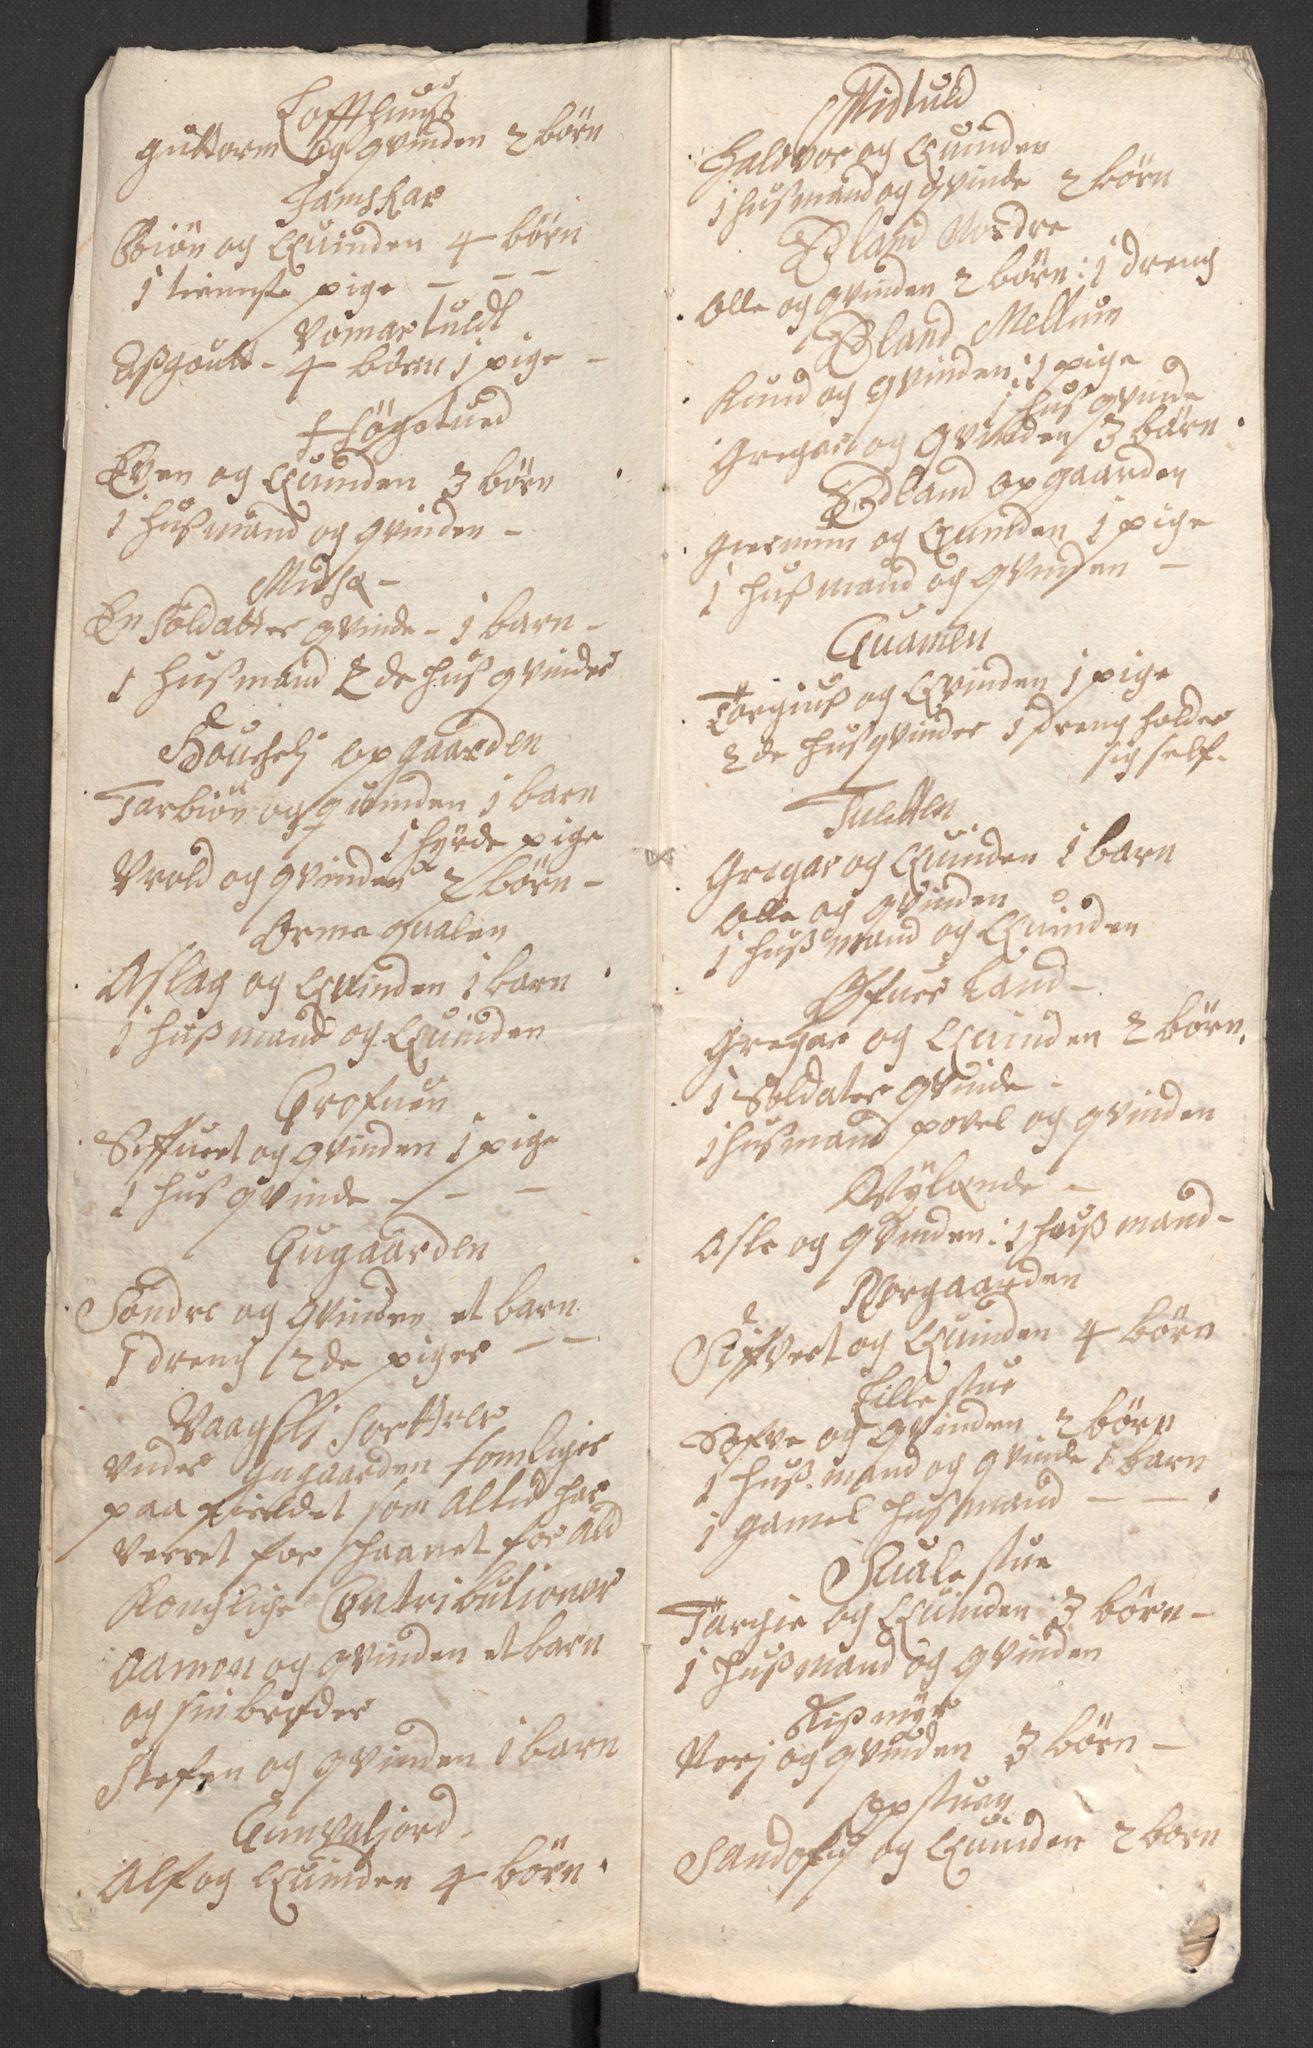 Loffthuus
guttorm og gvinden 2 børn
Jamskar
Biøn og Quinden 4 børn
1 tienniste pige - - -
Vomartuldt
Aßgoutt - 4 børn 1 pige -
Høgetued
Even og Quinden 3 børn
1 hußmand og gvinden -
Midhæ -
En Soldatter gvinde - 1 barn -
1 hußmand 2 de huß gvinder
Houchelj opgaarden
Tarbiøn og quinden 1 barn
1 hyrde pige
Vrold og gvinden 2 børn -
Ormegaalen
Aslag og Qvinden 1 barn
1 hußmand og Quinden
Grofuen
Siffuert og gvinden 1 pige
1 huß gvinde - - -
Gugaarden
Søndre og gvinden et barn
1 dreng 2 de piger - -
Vaagslj Sortther
under gugaarden somliger
paa fieldet som altid har
verret for skaanet for ald
Konglige Contributioner
Aamon og gvinden et barn
og sin broder
Stefen og gvinden 1 barn
Gunvaljord -
Alf og Quinden 4 børn
Midtuld
Haldvor og Quinden
1 hußmand og gvinde 2 børn
Edland Nordre
Olle og gvinden 2 børn : 1 dreng
Edland Mellum
Knud og gvinden : 1 pige
1 huß gvinde
Gregar og gvinden 3 børn
Edland opgaarden
giermun og Quinden 1 pige
1 hußmand og gvinden -
Quamen
Torgiuß og Qvinden 1 pige
2 de huß gvinder 1 dreng holder
sig self.
Tuetten
Gregar og Quinden 1 barn
Olle og gvinden
1 hußmand og Quinden
Øfuer Land -
Gregar og Quinden 2 børn
1 Soldater gvinde -
1 hußmand povel og gvinden
Nylænde -
Asle og gvinden : 1 hußmand -
Norgaarden
Siffvert og Quinden 4 børn
Lille stue
Sofve og gvinden 2 børn
1 hußmand og gvinde 1 barn
1 gamel hußmand - -
Huale stue
Targie og Quinden 3 børn -
1 hußmand og gvinden
Rißmyr
Nerj og gvinden 3 børn -
opstuen
Sandofn og Quinden 2 børn